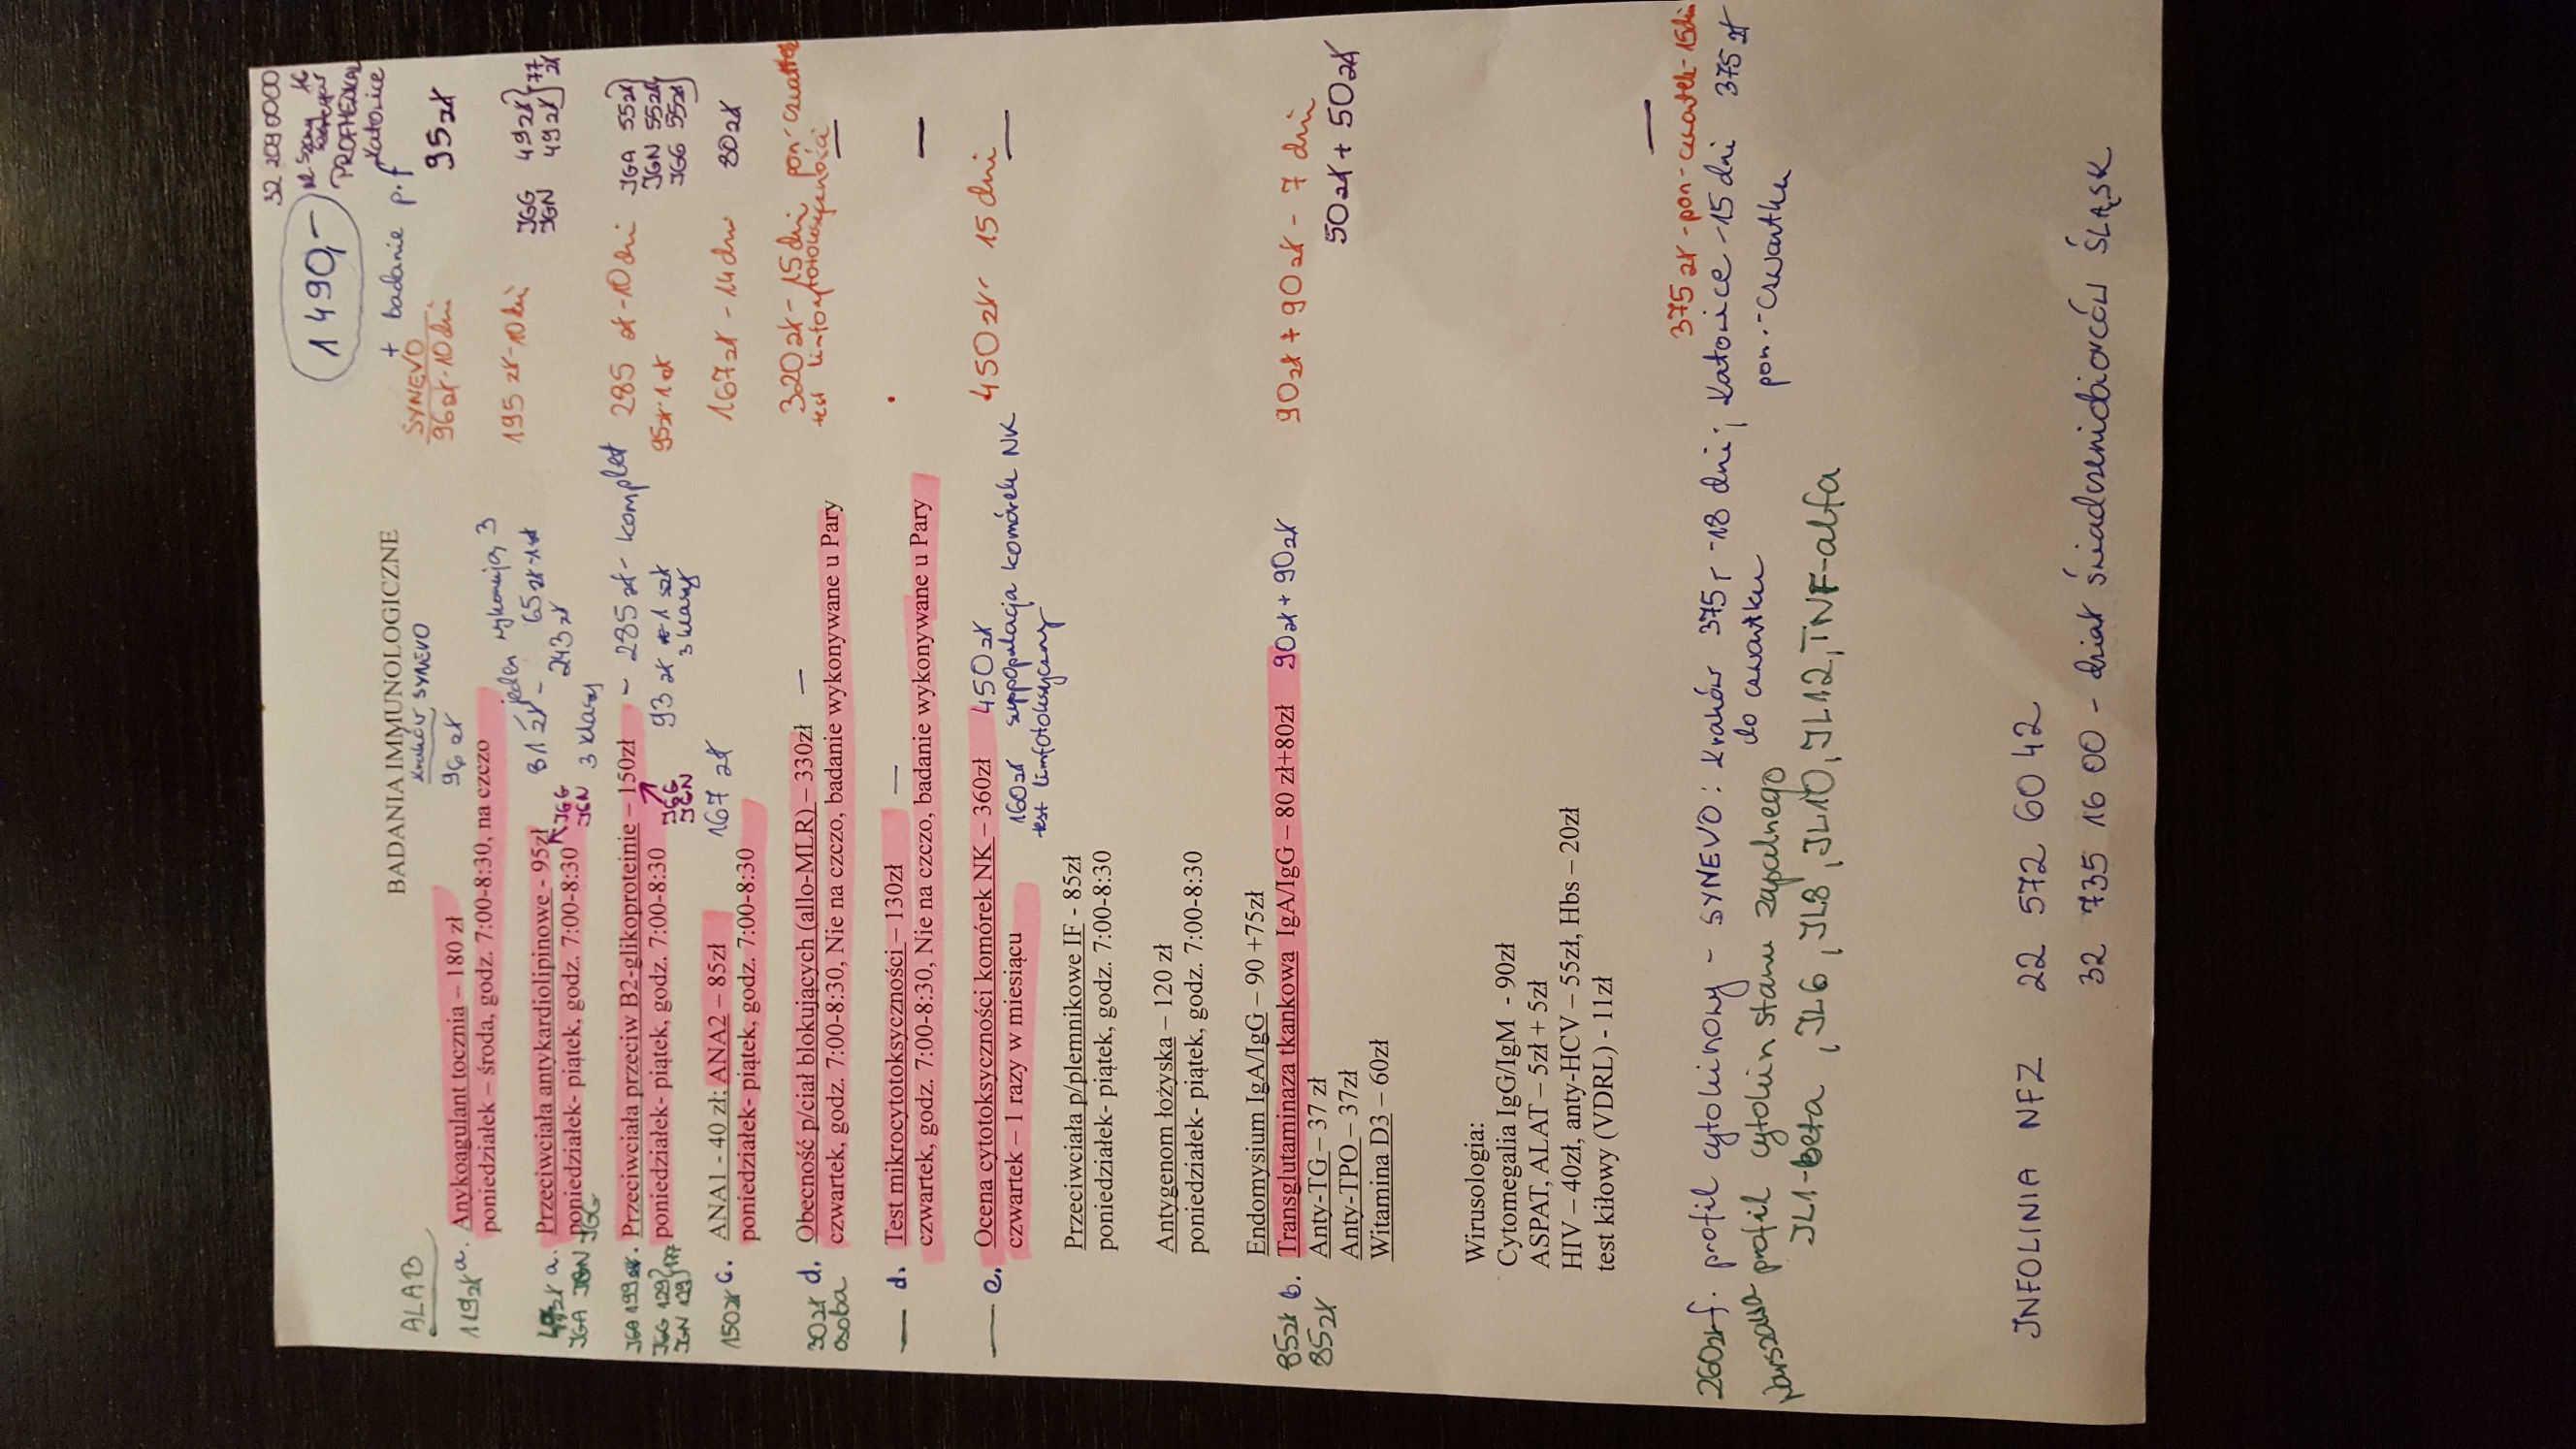 32 209 0000
1 490,-
PROFMEDICAL
Katowice
+ badanie p.f
BADANIA IMMUNOLOGICZNE
ALAB
Kraków SYNEVO
96 zł
SYNEVO
96 zł - 10 dni
95 zł
119 zł a. Anykoagulant tocznia – 180 zł
poniedziałek – środa, godz. 7:00-8:30, na czczo
a. Przeciwciała antykardiolipinowe - 95zł
poniedziałek- piątek, godz. 7:00-8:30
JGA JGN JGG
JGG
JGN
81 zł - jeden wykonują 3
243 zł 65 zł - 1
3 klasy
195 zł - 10 dni
JGG 49 zł
JGN 49 zł
77 zł
Przeciwciała przeciw B2-glikoproteinie – 150zł
poniedziałek- piątek, godz. 7:00-8:30
JGA 199 zł
JGG 129
JGN 129
177
JGG
JGN
- 285 zł - komplet
93 zł 1 szt
3 klasy
285 zł - 10 dni
95 zł 1 szt
JGA 55 zł
JGN 55 zł
JGG 55 zł
150 zł c. ANA1 - 40 zł; ANA2 – 85zł
poniedziałek- piątek, godz. 7:00-8:30
167 zł
167 zł - 14 dni
80 zł
d. Obecność p/ciał blokujących (allo-MLR) – 330zł —
czwartek, godz. 7:00-8:30, Nie na czczo, badanie wykonywane u Pary
30 zł
osoba
320 zł - 15 dni pon-czwartek
test
— d. Test mikrocytotoksyczności – 130zł —
czwartek, godz. 7:00-8:30, Nie na czczo, badanie wykonywane u Pary
— e. Ocena cytotoksyczności komórek NK – 360zł 450 zł
czwartek – 1 razy w miesiącu
160 zł suppopulacja komórek NK
test limfotoksyczny
450 zł - 15 dni —
Przeciwciała p/plemnikowe IF - 85zł
poniedziałek- piątek, godz. 7:00-8:30
Antygenom łożyska – 120 zł
poniedziałek- piątek, godz. 7:00-8:30
Endomysium IgA/IgG – 90 +75zł
85 zł b. Transglutaminaza tkankowa IgA/IgG – 80 zł+80zł 90 zł + 90 zł 90 zł + 90 zł - 7 dni
85 zł
50 zł + 50 zł
Anty-TG – 37 zł
Anty-TPO – 37zł
Witamina D3 – 60zł
Wirusologia:
Cytomegalia IgG/IgM - 90zł
ASPAT, ALAT – 5zł + 5zł
HIV – 40zł, anty-HCV – 55zł, Hbs – 20zł
test kiłowy (VDRL) - 11zł
375 zł - pon-czwartek - 15 dni
260 zł f. profil cytokinowy - SYNEVO: Kraków 375,- 18 dni; Katowice - 15 dni 375 zł
do czwartku pon.-czwartku
Warszawa profil cytokin stanu zapalnego
JL1-beta, JL6, JL8, JL10, JL12, TNF-alfa
JNFOLINIA NFZ 22 572 60 42
32 735 16 00 - dział świadczeniobiorców ŚLĄSK